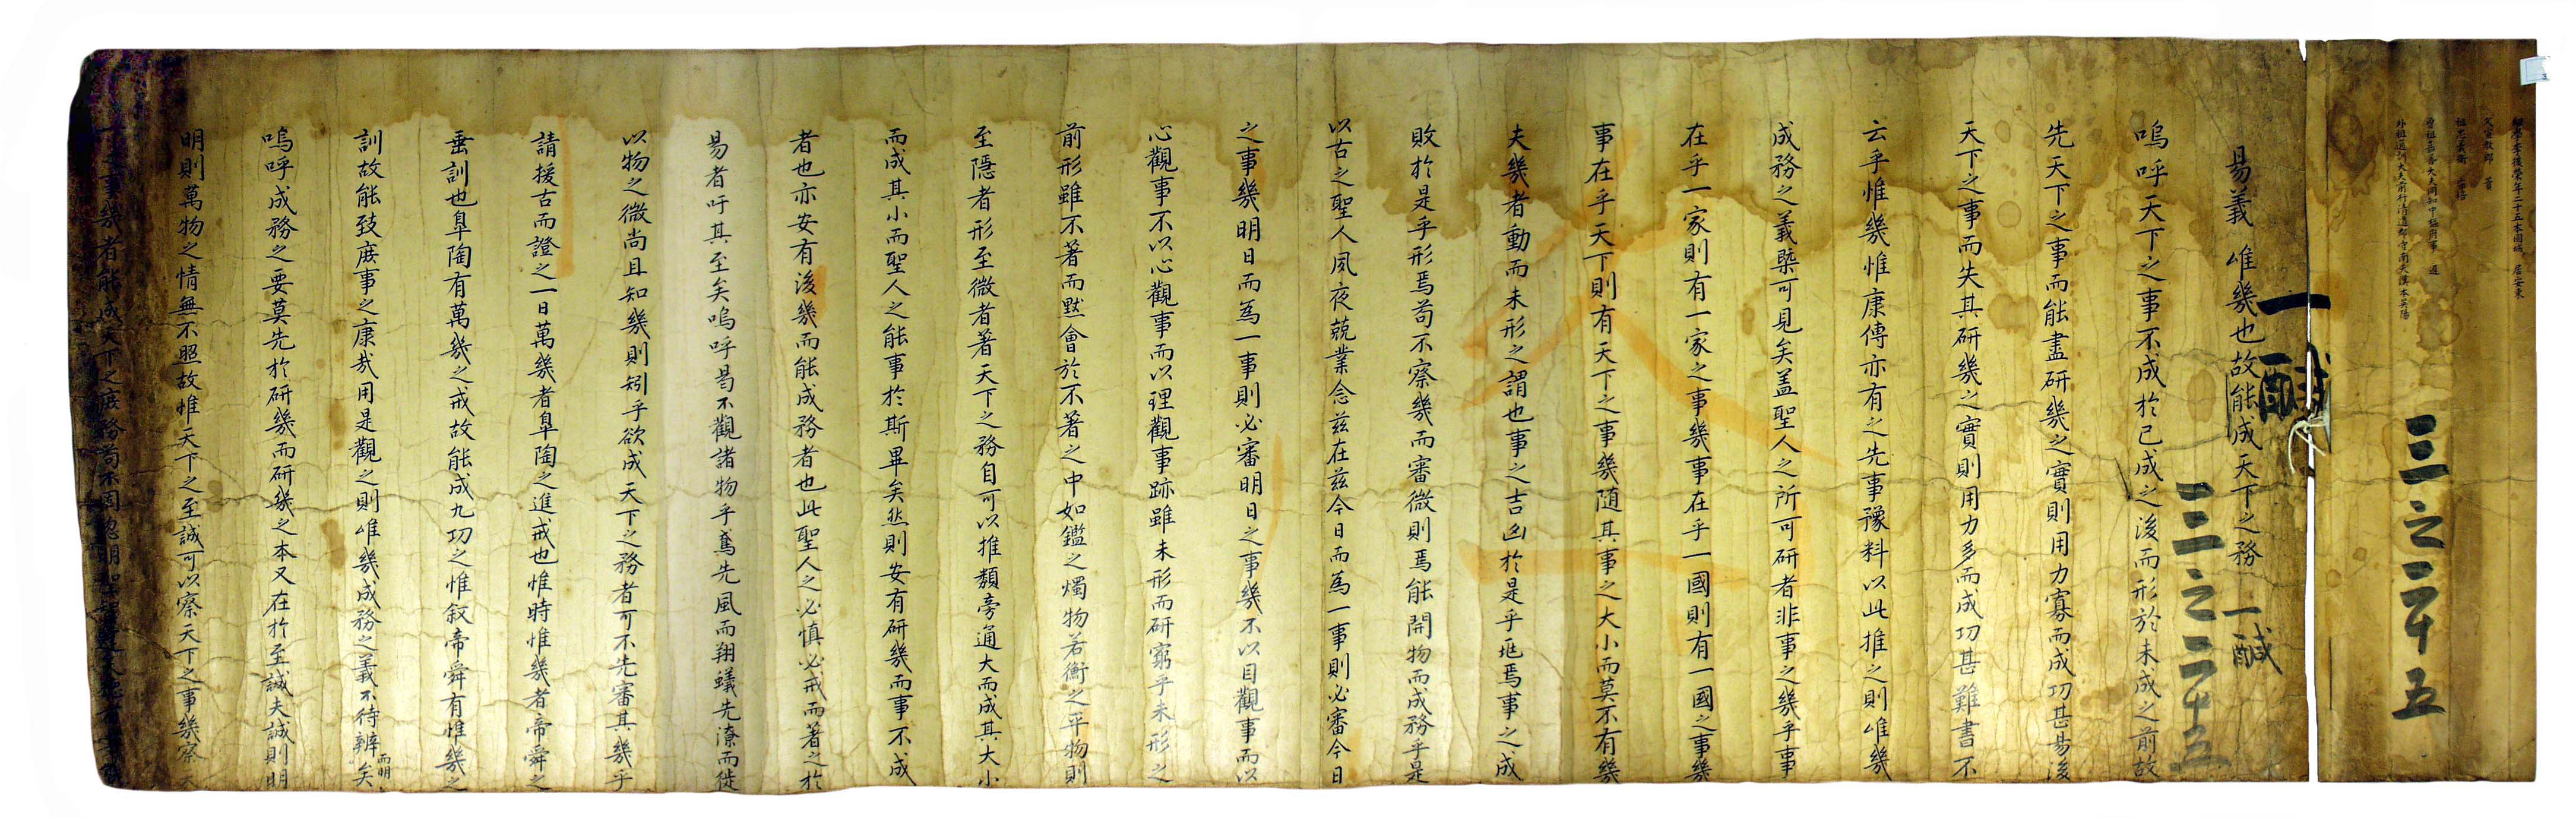 幼學李後榮年二十五本固城 居安東
父宣敎郎 蓍
祖忠義衛
曾祖嘉善大夫同知中樞府事 適
外祖通訓大夫前行
三之二千五
一
一鹹
三之二千五
易義 唯幾也故能成天下之務
嗚呼天下之事不成於已成之後而形於未成之前故
先天下之事而能盡研幾之實則用力寡而成功甚易後
天下之事而失其研幾之實則用力多而成功甚難書不
云乎惟幾惟康傳亦有之先事豫料以此推之則唯幾
成務之義槩可見矣盖聖人之所可研者非事之幾乎事
在乎一家則有一家之事幾事在乎一國則有一國之事幾
事在乎天下則有天下之事幾随其事之大小而莫不有幾
夫幾者動而未形之謂也事之吉凶於是乎兆焉事之成
敗於是乎形焉苟不察幾而審微則焉能開物而成務乎是
以古之聖人夙夜兢業念兹在兹今日而爲一事則必審今日
之事幾明日而爲一事則必審明日之事幾不以目觀事而以
心觀事不以心觀事而以理觀事跡雖未形而研窮乎未形之
前形雖不著而默會於不著之中如鑑之燭物若衡之平物則
至隱者形至微者著天下之務自可以推類旁通大而成其大小
而成其小而聖人之能事於斯畢矣然則安有研幾而事不成
者也亦安有後幾而能成務者也此聖人之必愼必戒而著之於
易者吁其至矣嗚呼曷不觀諸物乎鳶先風而翔蟻先潦而徙
以物之微尚且知幾則矧乎欲成天下之務者可不先審其幾乎
請援古而證之一日萬幾者皐陶之進戒也惟時惟幾者帝舜之
垂訓也皐陶有萬幾之戒故能成九功之惟叙帝舜有惟幾之
訓故能致庶事之康哉用是觀之則唯幾成務之義不待辨而明矣
嗚呼成務之要莫先於研幾而研幾之本又在於至誠夫誠則明
明則萬物之情無不照故惟天下之至誠可以察天下之事幾察天
下之事幾者能成天下之庶務